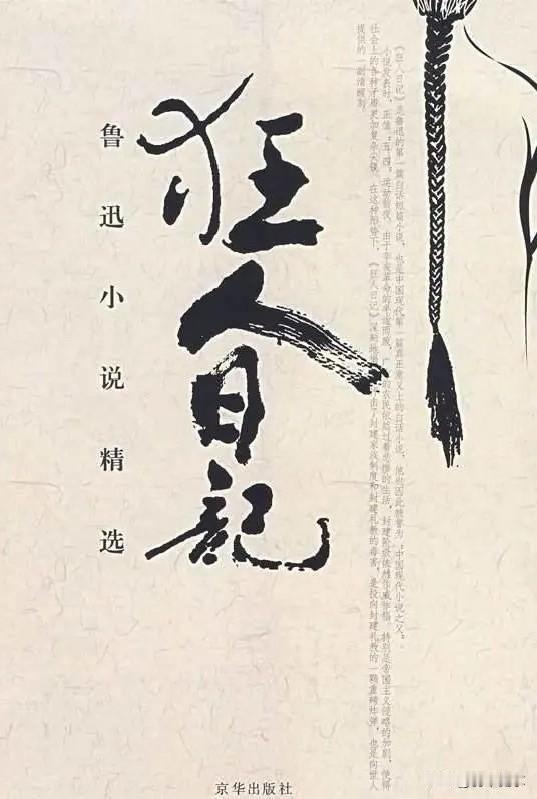 狂人日記
鲁迅小说精选
《狂人日记》是鲁迅的第一篇白话短篇小说，也是中国现代第一篇真正意义上的白话小说，他也因此被誉为“中国现代小说之父”。
小说发表时，正值“五四”运动前夜，由于辛亥革命的半途而废，广的农民依然过着悲惨的生活，封建阶级依然作威作福，特别是帝国主义侵略的加剧，使得
社会上的各种矛盾更加复杂尖锐。在这种形势下，《狂人日记》深刻地出了封建家族制度和封建礼教的毒害，是投向封建礼教的一颗重磅炸弹，也是向世人
提供的一副清醒剂。
京华出版社